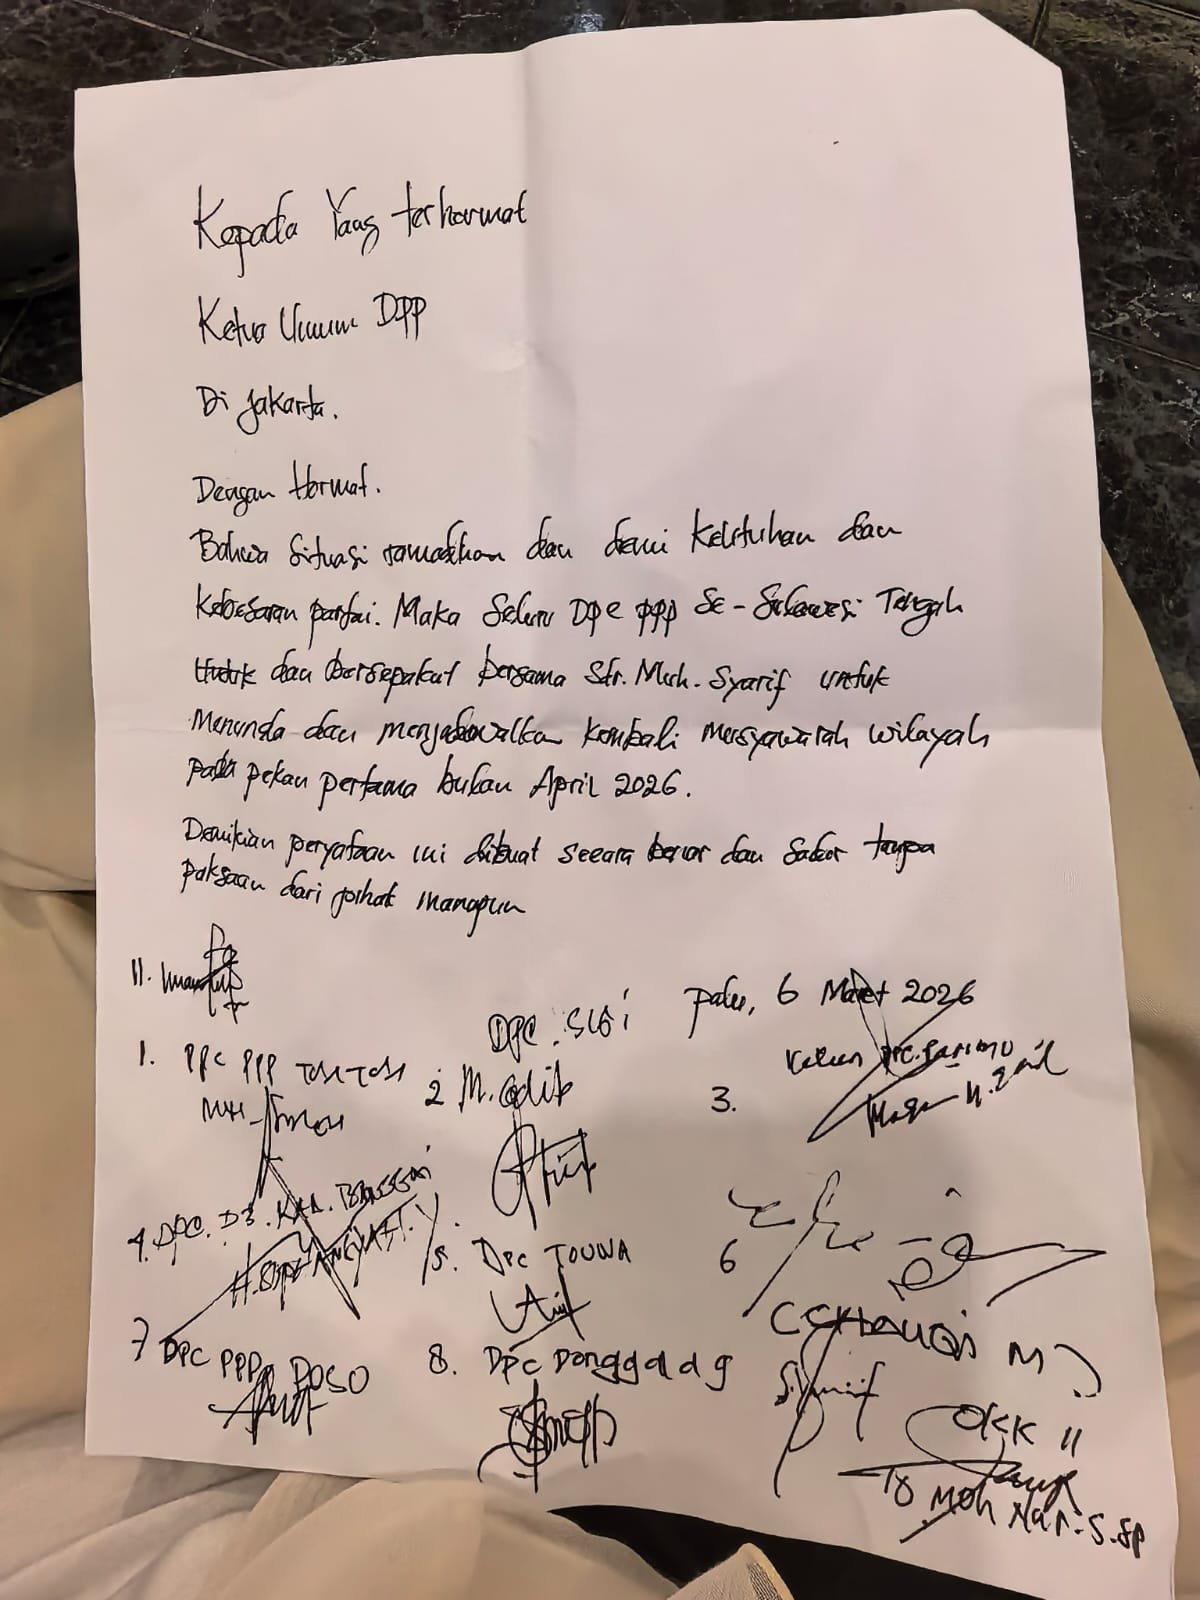 Kepada Yang terhormat
Ketua Umum DPP
Di Jakarta.
Dengan Hormat.
Bahwa Situasi ramadhan dan demi Keutuhan dan
Kebesaran partai. Maka Seluru DPC PPP Se-Sulawesi Tengah
Untuk dan bersepakat bersama Sdr. Muh. Syarif untuk
Menunda dan menjadwalkan kembali musyawarah wilayah
pada pekan pertama bulan April 2026.
Demikian peryataan ini dibuat secara benar dan sadar tanpa
paksaan dari pihak manapun
11.
Palu, 6 Maret 2026
DPC. SIGI
1. PPC PPP
2 M.
3.
4. DPC.
5. DPC TOUNA
6
7 DPC PPP POSO
8. DPC Donggala
OKK
10 MOH